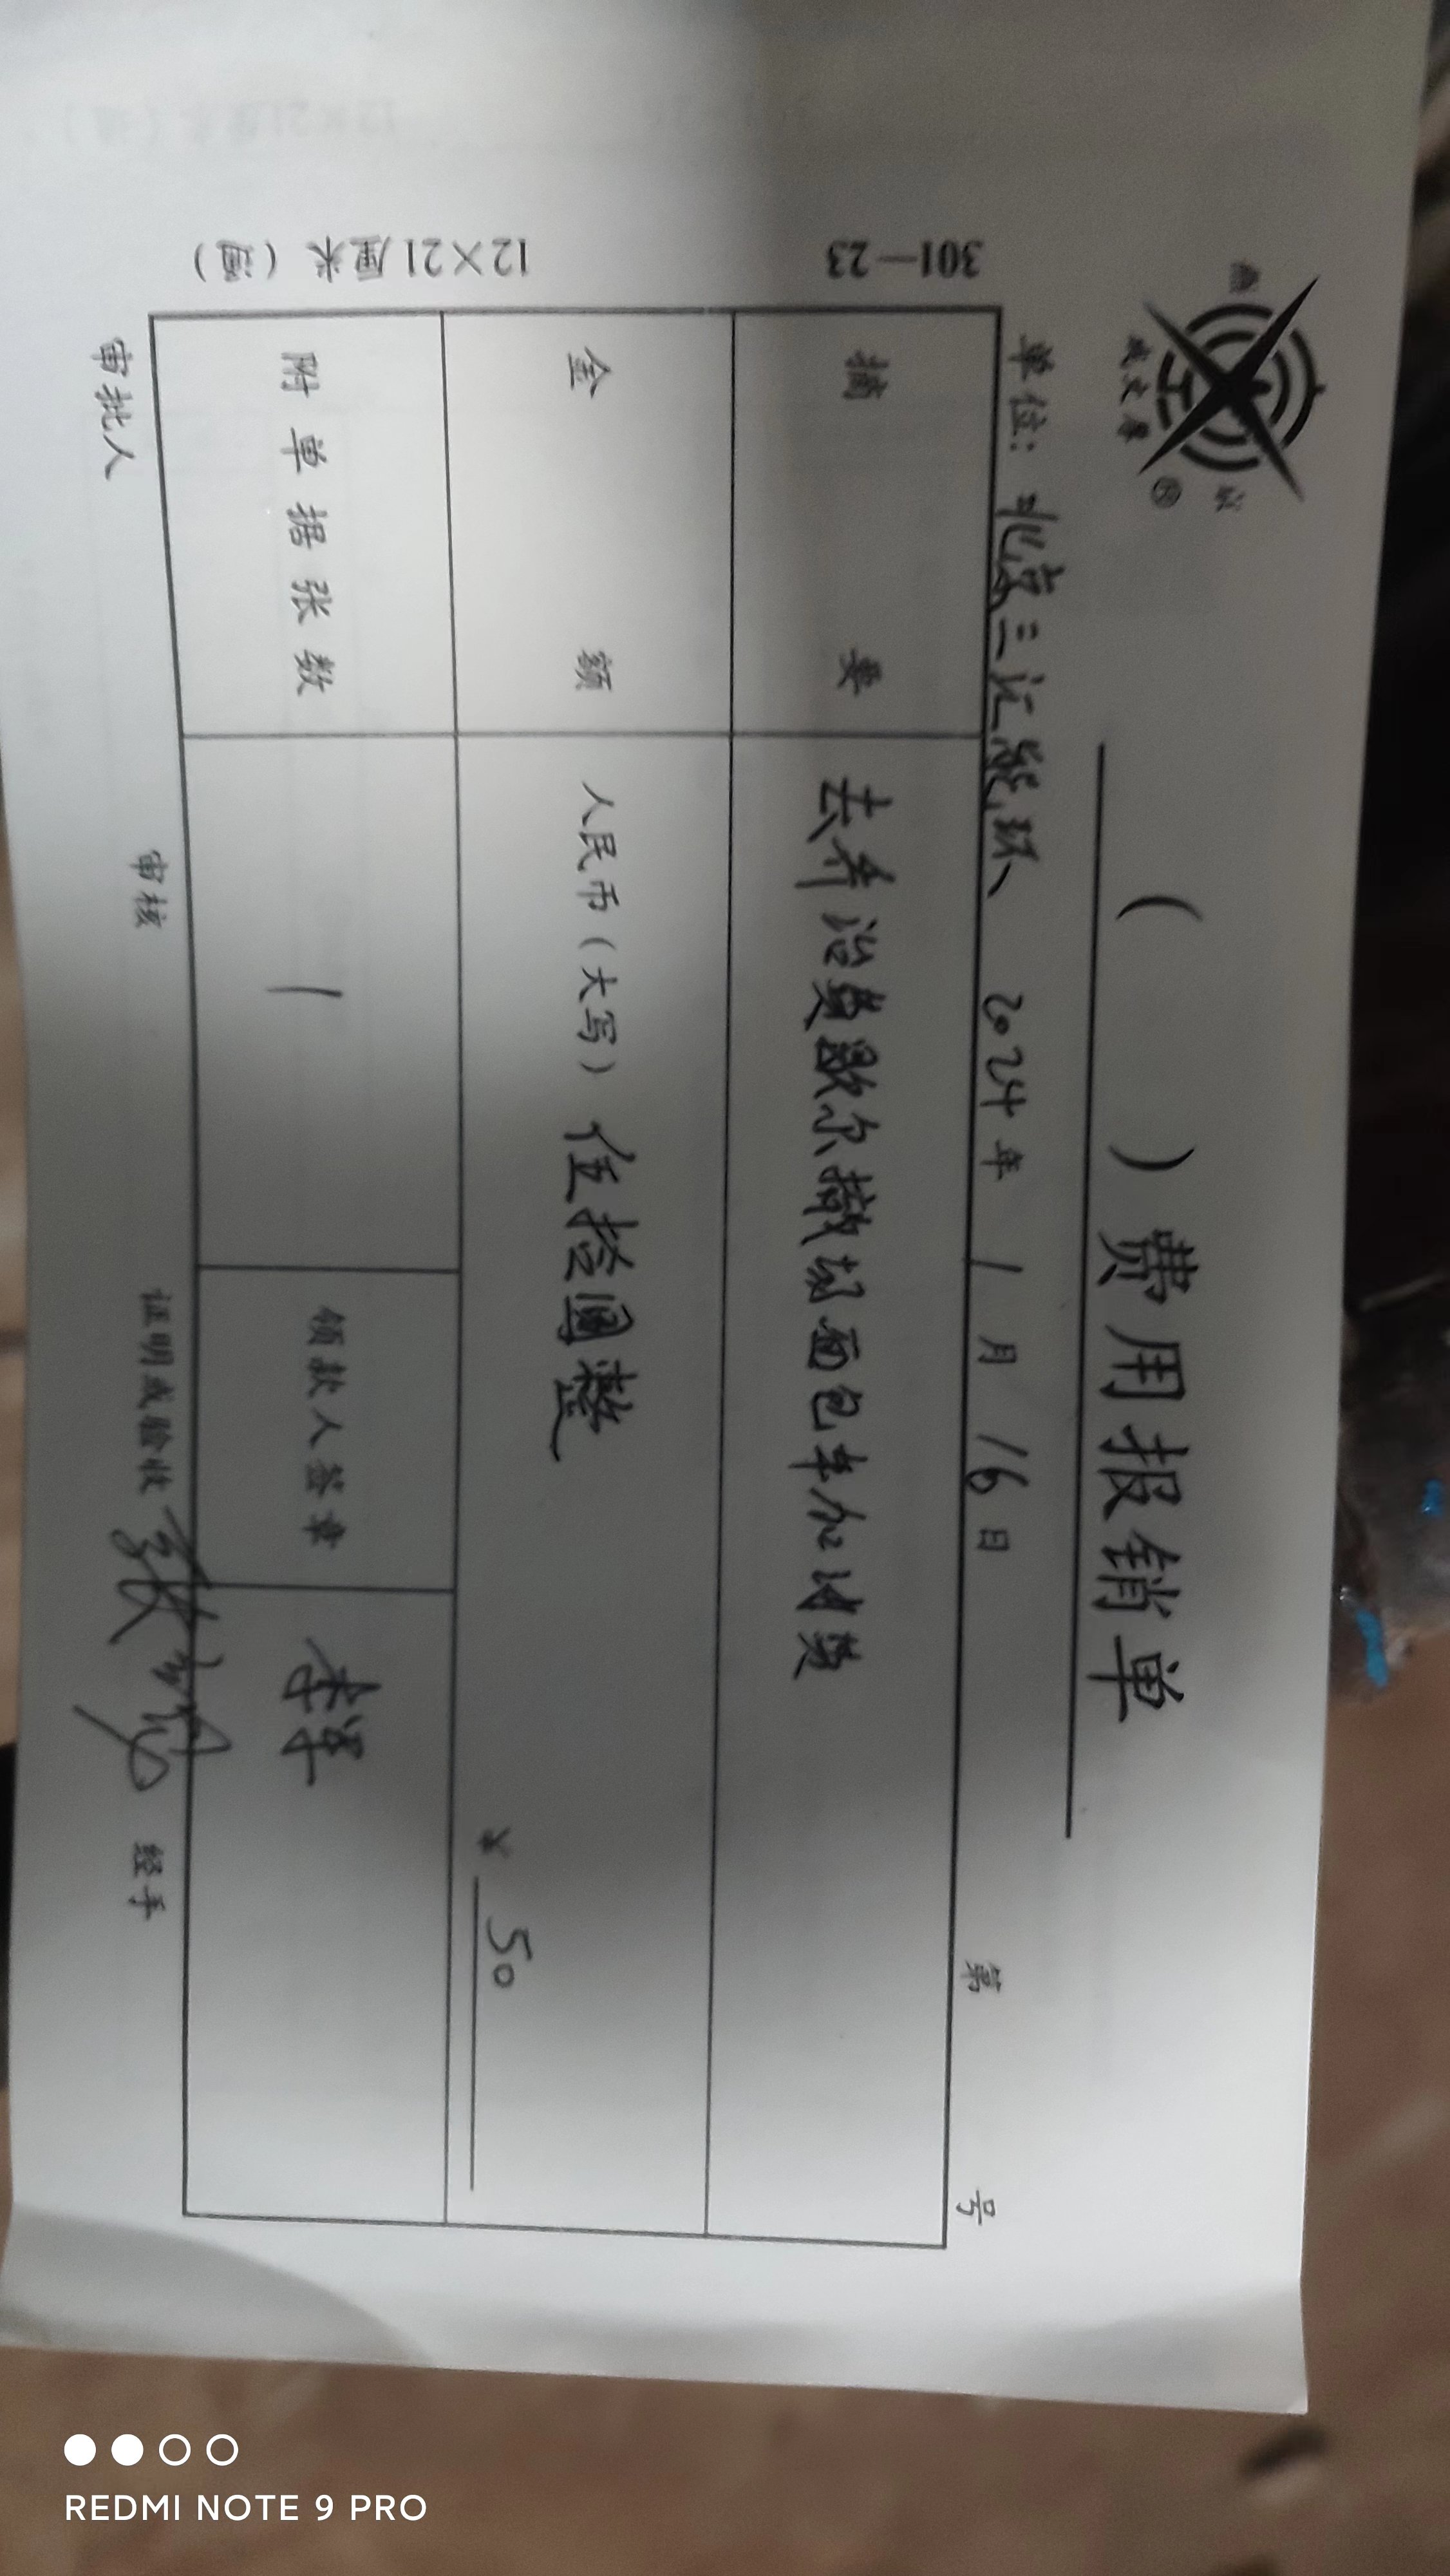 ( ) 费用报销单
单位: 北京三汇能环 2024年 1月 16日 第 号
301—23
摘要 去乔治费歇尔撤场面包车加油费
金额 人民币(大写) 伍拾圆整
¥ 50
12×21厘米(通)
附单据张数 1 领款人签章
审批人 审核 证明或验收 经手
REDMI NOTE 9 PRO